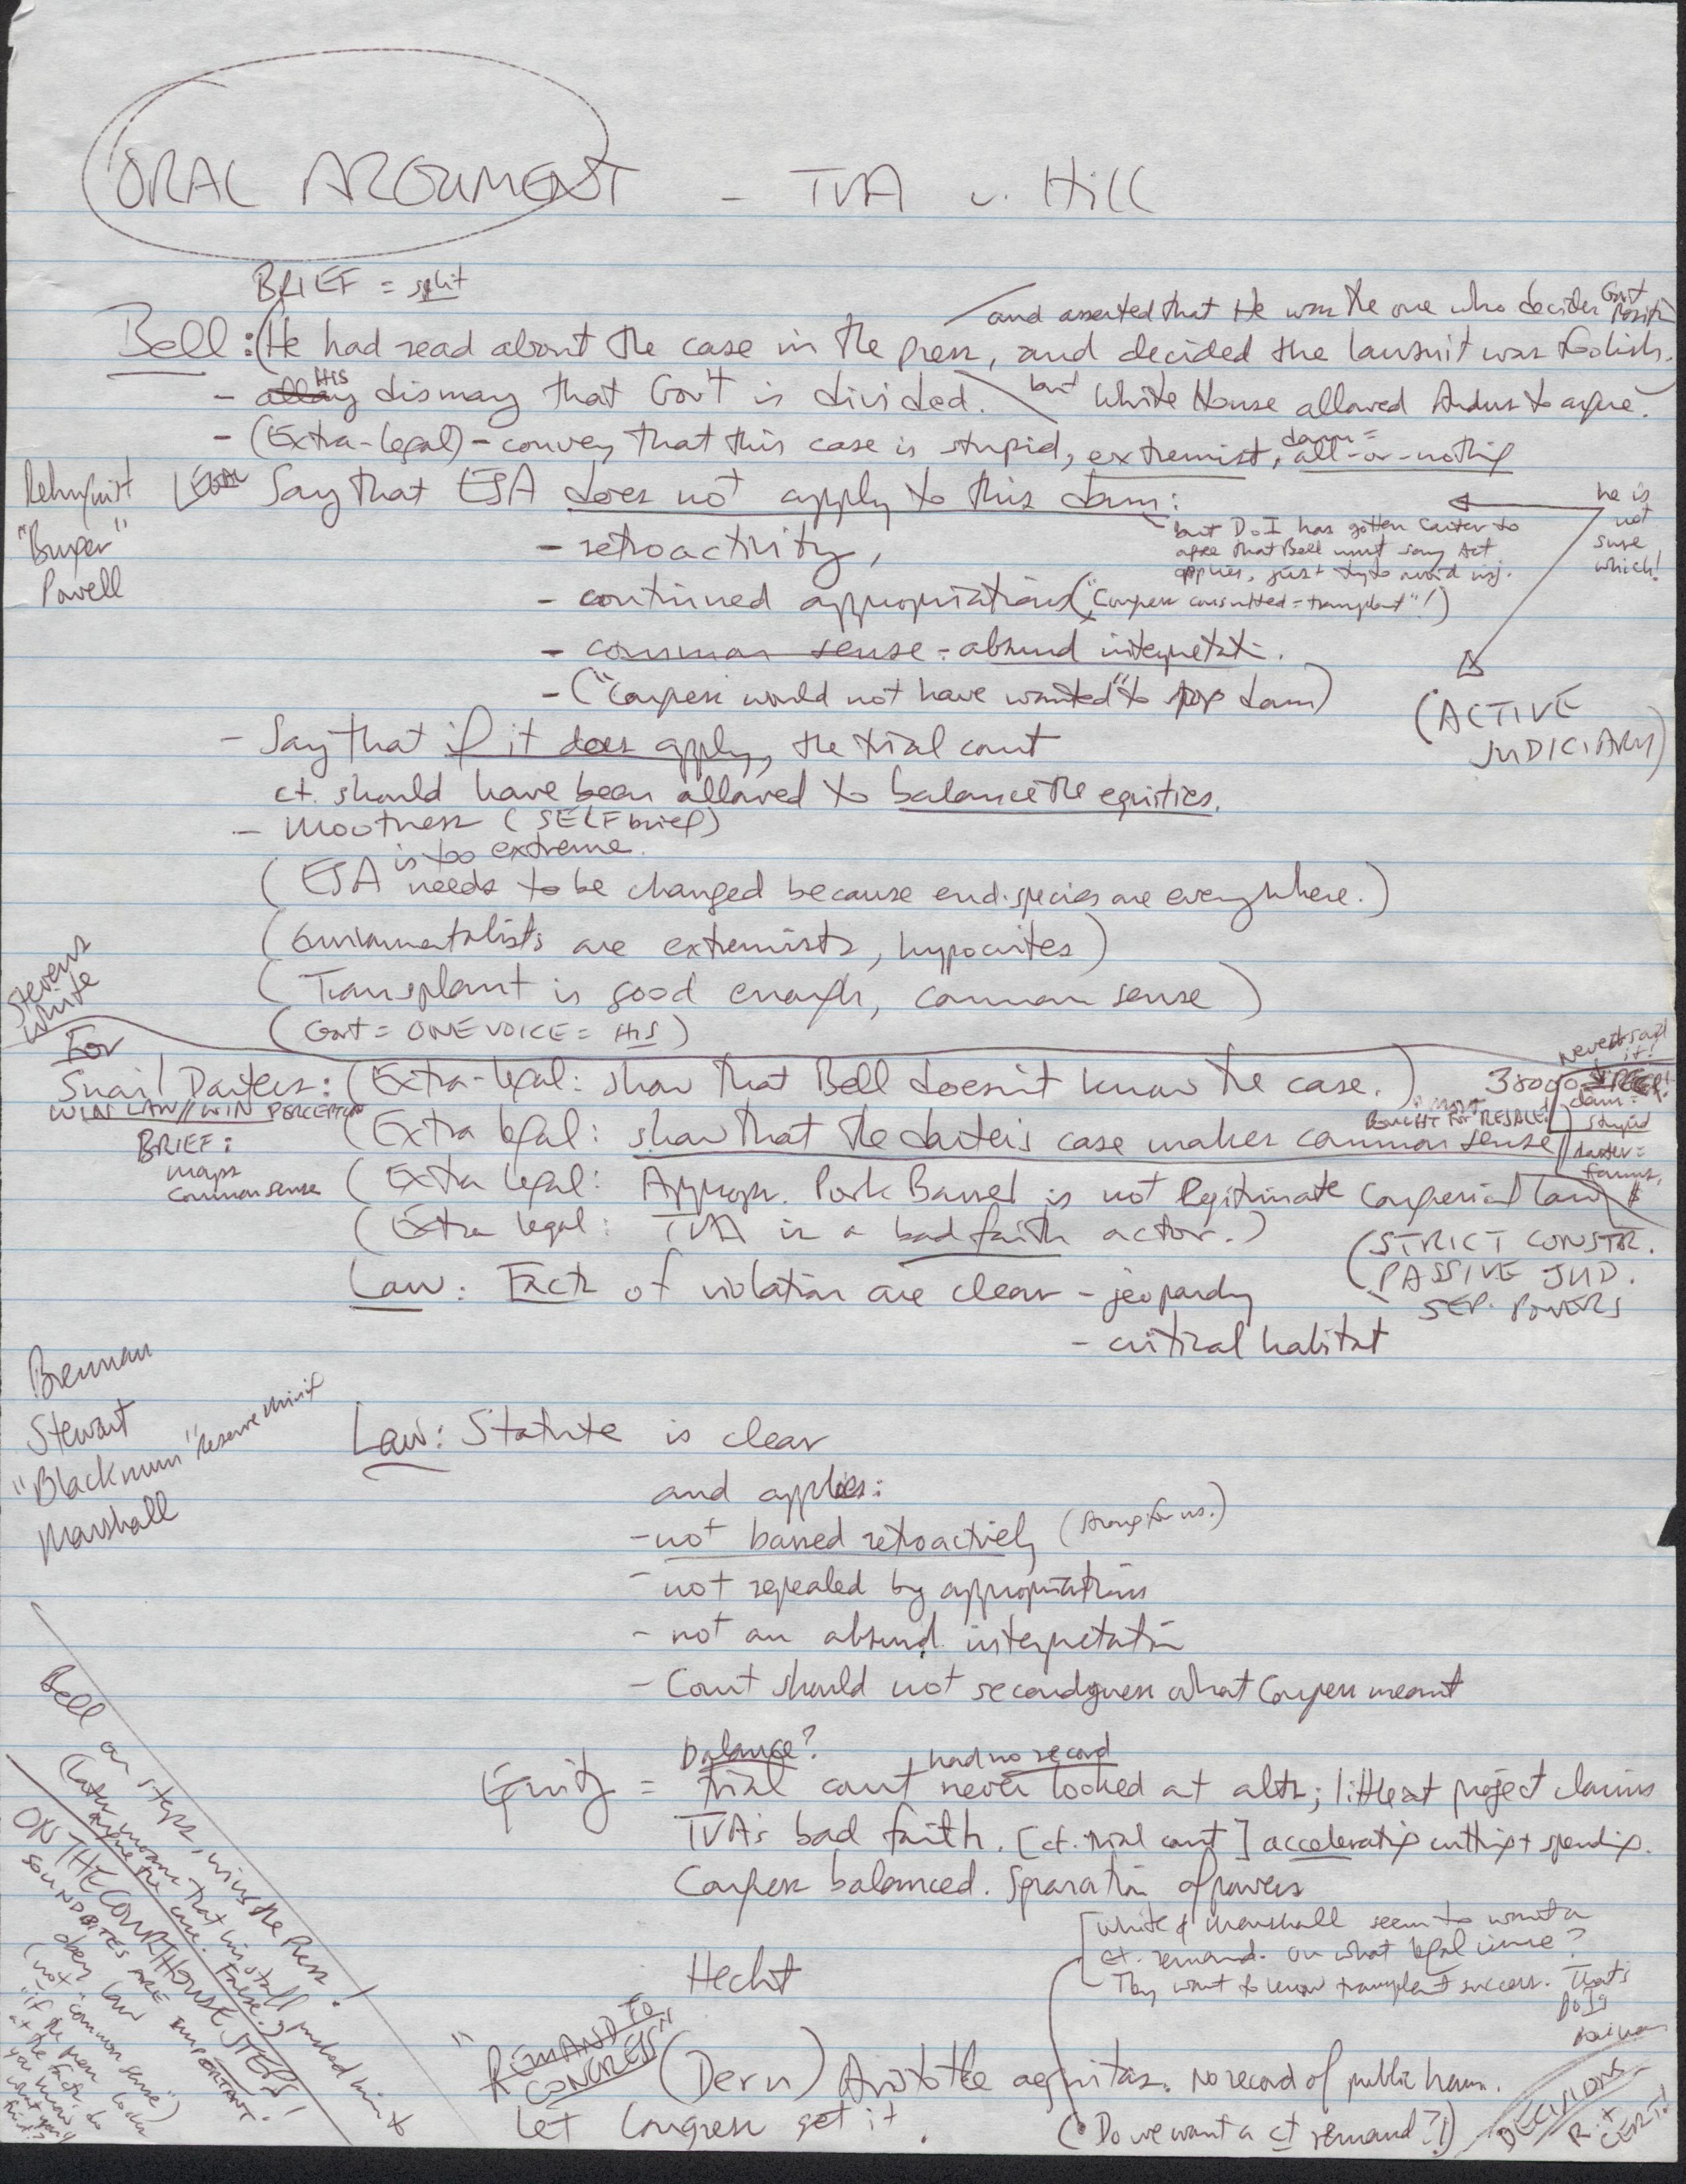 ORAL ARGUMENT - TVA v. Hill
BRIEF = split
and asserted that He was the one who decides Gov't Position
Bell: (He had read about the case in the press, and decided the lawsuit was foolish.
- His dismay that Gov't is divided. but White House allowed Andrus to argue.
- (Extra-legal) - convey that this case is stupid, extremist, dam = all-or-nothing
Rehnquist
"Burger"
Powell
Say that ESA does not apply to this dam:
he is
not
sure
which!
- retroactivity,
but DoI has gotten Carter to
agree that Bell must say Act
applies, just try to avoid inj.
- continued appropriations ("Congress consulted = transplant"!)
- common sense - absurd interpretati.
- ("Congress would not have wanted" to stop dam)
(ACTIVE
JUDICIARY)
- Say that if it does apply, the trial court
ct. should have been allowed to balance the equities.
- Mootness (SELF brief)
is too extreme.
(ESA needs to be changed because end. species are everywhere.)
(Environmentalists are extremists, hypocrites)
(Transplant is good enough, common sense)
(Gov't = ONE VOICE = HIS)
Stevens
White
For
Snail Darters: (Extra-legal: show that Bell doesn't know the case.)
never said
it!
38000
WIN LAW // WIN PERCEPTION
BOUGHT FOR RESALE!
dam =
stupid
darter =
farms,
$
(Extra legal: show that the darter's case makes common sense
BRIEF:
maps
common sense
(Extra legal: Approps. Pork Barrel is not legitimate Congressional law
(Extra legal: TVA is a bad faith actor.)
(STRICT CONSTR.
PASSIVE JUD.
SEP. POWERS
Law: Facts of violation are clear - jeopardy
- critical habitat
Brennan
Stewart
"Blackmun" "reserve mining
Marshall
Law: Statute is clear
and applies:
- not barred retroactively (strong for us.)
- not repealed by appropriations
- not an absurd interpretatin
- Court should not secondguess what Congress meant
Balance? had no record
Equity = trial court never looked at alts; little at project claims
TVA's bad faith. [ct. trial court] accelerating cutting + spending.
Congress balanced. Sparation of powers
[White & Marshall seem to want a
ct. remand. On what legal issue?
They want to know transplant success. That's
Hecht
"REMAND TO
CONGRESS"
(Dern) Aristotle aequitas. No record of public harm.
Let Congress get it.
(Do we want a ct remand?!)
DECISIONS
Rt
CERT!
Bell on steps, wins the Press!
(Later moans that his staff pushed him to
argue the case. False.)
ON THE COURTHOUSE STEPS!
SOUNDBITES ARE IMPORTANT.
obey law
(not "common sense")
"if the press looks
at the facts, do
you know
what you'll
find?